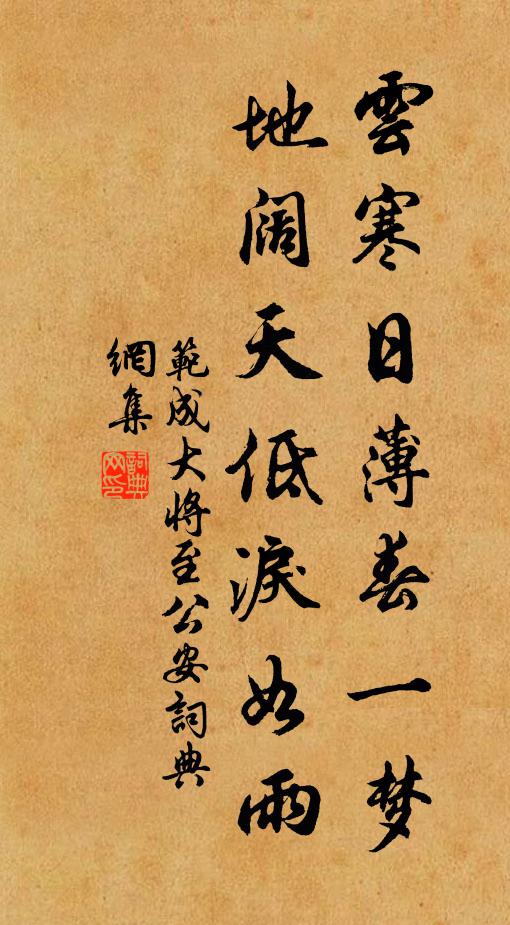 雲寒日薄春一梦
地阔天低淚如雨
範成大將至公安詞典
網集
詞典
网印